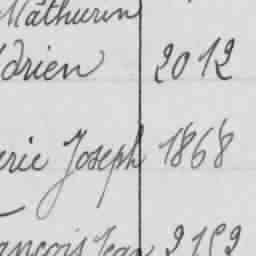 Mathurin
drien 2012
erie Joseph 1868
ançois Jean 2152